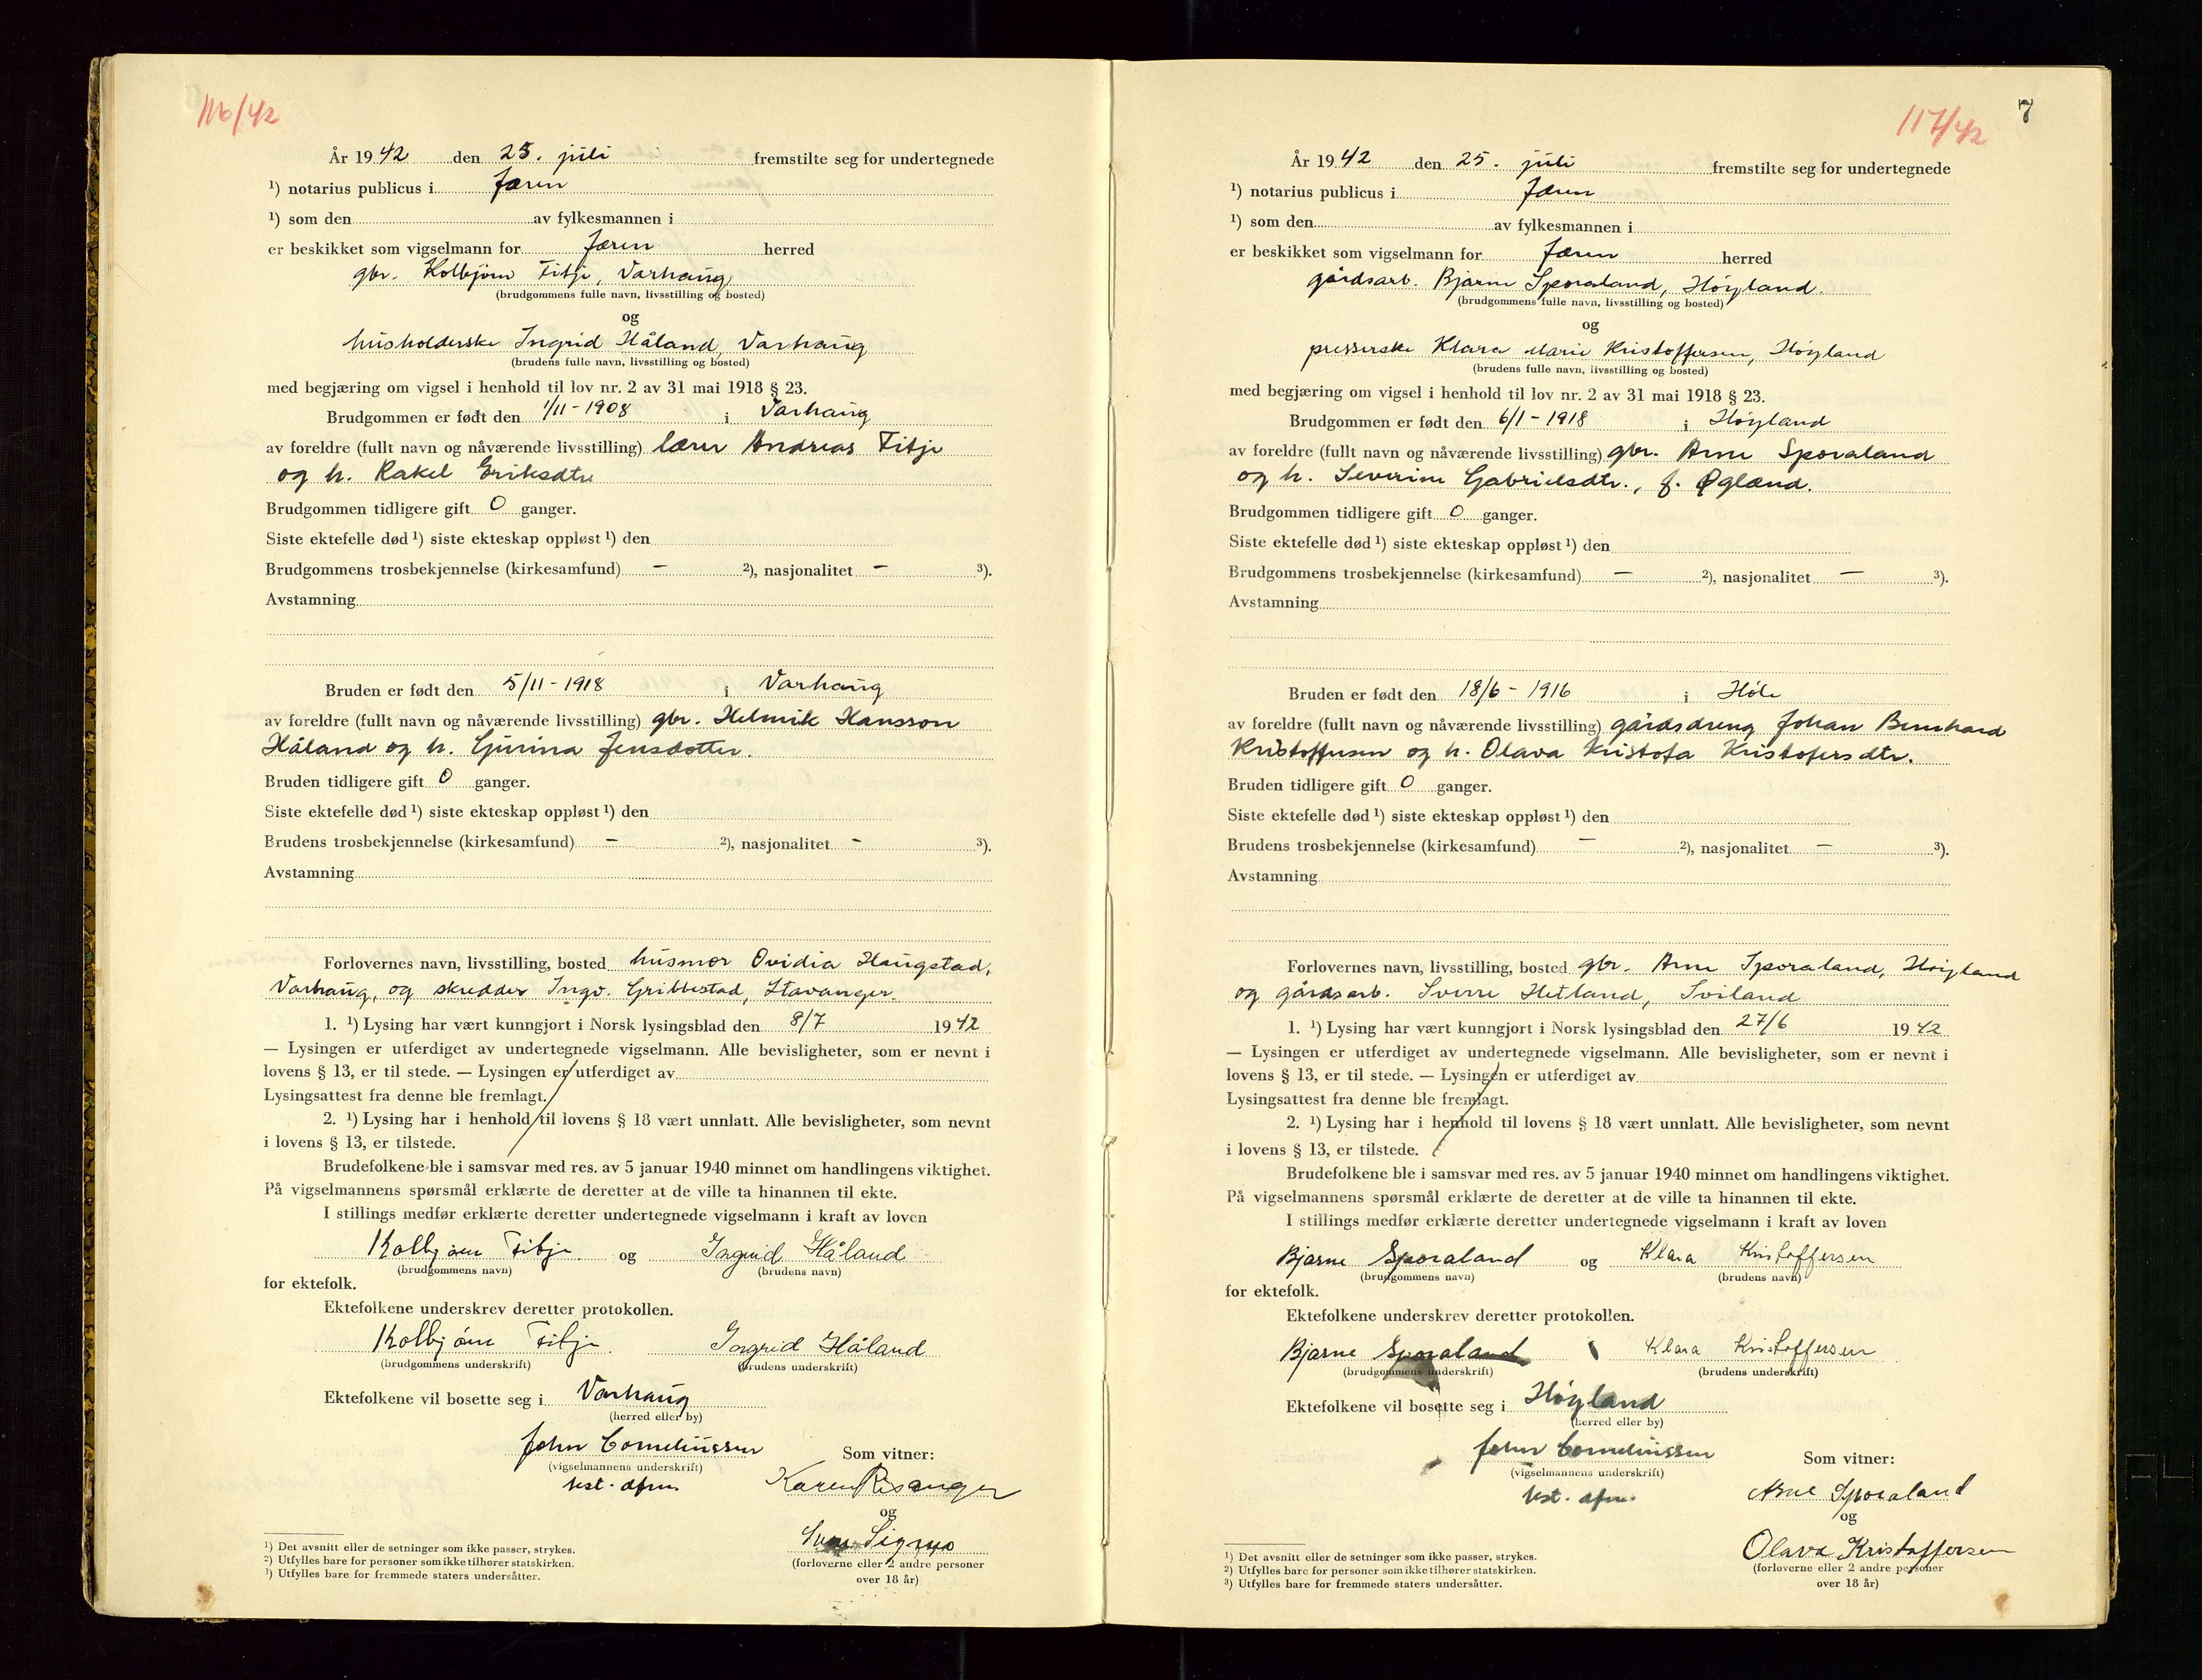 116/42
År 1942 den 25. juli fremstilte seg for undertegnede
¹) notarius publicus i Jæren
¹) som den av fylkesmannen i
er beskikket som vigselmann for Jæren herred
gbr. Kolbjørn Fitje, Varhaug
(brudgommens fulle navn, livsstilling og bosted)
og
husholderske Ingrid Håland, Varhaug
(brudens fulle navn, livsstilling og bosted)
med begjæring om vigsel i henhold til lov nr. 2 av 31 mai 1918 § 23.
Brudgommen er født den 1/11 - 1908 i Varhaug
av foreldre (fullt navn og nåværende livsstilling) lærer Andreas Fitje
og h. Rakel Eriksdtr
Brudgommen tidligere gift 0 ganger.
Siste ektefelle død ¹) siste ekteskap oppløst ¹) den
Brudgommens trosbekjennelse (kirkesamfund) — ²), nasjonalitet — ³).
Avstamning
Bruden er født den 5/11 - 1918 i Varhaug
av foreldre (fullt navn og nåværende livsstilling) gbr. Helmik Hansson
Håland og h. Gurina Jensdotter.
Bruden tidligere gift 0 ganger.
Siste ektefelle død ¹) siste ekteskap oppløst ¹) den
Brudens trosbekjennelse (kirkesamfund) — ²), nasjonalitet - ³).
Avstamning
Forlovernes navn, livsstilling, bosted husmor Ovidia Haugstad,
Varhaug, og skredder Ingv. Gribbestad, Stavanger.
1. ¹) Lysing har vært kunngjort i Norsk lysingsblad den 8/7 1942
— Lysingen er utferdiget av undertegnede vigselmann. Alle bevisligheter, som er nevnt i
lovens § 13, er til stede. — Lysingen er utferdiget av
Lysingsattest fra denne ble fremlagt.
2. ¹) Lysing har i henhold til lovens § 18 vært unnlatt. Alle bevisligheter, som nevnt
i lovens § 13, er tilstede.
Brudefolkene ble i samsvar med res. av 5 januar 1940 minnet om handlingens viktighet.
På vigselmannens spørsmål erklærte de deretter at de ville ta hinannen til ekte.
I stillings medfør erklærte deretter undertegnede vigselmann i kraft av loven
Kolbjørn Fitje og Ingrid Håland
(brudgommens navn) (brudens navn)
for ektefolk.
Ektefolkene underskrev deretter protokollen.
Kolbjørn Fitje. Ingrid Håland
(brudgommens underskrift) (brudens underskrift)
Ektefolkene vil bosette seg i Varhaug
(herred eller by)
John Corneliussen Som vitner:
(vigselmannens underskrift)
Karen Risanger
og
Sigmo
(forloverne eller 2 andre personer
over 18 år)
¹) Det avsnitt eller de setninger som ikke passer, strykes.
²) Utfylles bare for personer som ikke tilhører statskirken.
³) Utfylles bare for fremmede staters undersåtter.
117/42 7
År 1942 den 25. juli fremstilte seg for undertegnede
¹) notarius publicus i Jæren
¹) som den av fylkesmannen i
er beskikket som vigselmann for Jæren herred
gårdsarb. Bjarne Sporaland, Høyland.
(brudgommens fulle navn, livsstilling og bosted)
og
presserske Klara Marie Kristoffersen, Høyland
(brudens fulle navn, livsstilling og bosted)
med begjæring om vigsel i henhold til lov nr. 2 av 31 mai 1918 § 23.
Brudgommen er født den 6/1 - 1918 i Høyland
av foreldre (fullt navn og nåværende livsstilling) gbr. Arne Sporaland
og h. Severine Gabrielsdtr., f. Øgland.
Brudgommen tidligere gift 0 ganger.
Siste ektefelle død ¹) siste ekteskap oppløst ¹) den
Brudgommens trosbekjennelse (kirkesamfund) — ²), nasjonalitet — ³).
Avstamning
Bruden er født den 18/6 - 1916 i Høle
av foreldre (fullt navn og nåværende livsstilling) gårdsdreng Johan Bernhard
Kristoffersen og h. Olava Kristofa Kristofersdtr.
Bruden tidligere gift 0 ganger.
Siste ektefelle død ¹) siste ekteskap oppløst ¹) den
Brudens trosbekjennelse (kirkesamfund) — ²), nasjonalitet — ³).
Avstamning
Forlovernes navn, livsstilling, bosted gbr. Arne Sporaland, Høyland
og gårdsarb. Sverre Hetland, Sviland
1. ¹) Lysing har vært kunngjort i Norsk lysingsblad den 27/6 1942
— Lysingen er utferdiget av undertegnede vigselmann. Alle bevisligheter, som er nevnt i
lovens § 13, er til stede. — Lysingen er utferdiget av
Lysingsattest fra denne ble fremlagt.
2. ¹) Lysing har i henhold til lovens § 18 vært unnlatt. Alle bevisligheter, som nevnt
i lovens § 13, er tilstede.
Brudefolkene ble i samsvar med res. av 5 januar 1940 minnet om handlingens viktighet.
På vigselmannens spørsmål erklærte de deretter at de ville ta hinannen til ekte.
I stillings medfør erklærte deretter undertegnede vigselmann i kraft av loven
Bjarne Sporaland og Klara Kristoffersen
(brudgommens navn) (brudens navn)
for ektefolk.
Ektefolkene underskrev deretter protokollen.
Bjarne Sporaland Klara Kristoffersen
(brudgommens underskrift) (brudens underskrift)
Ektefolkene vil bosette seg i Høyland
(herred eller by)
John Corneliussen Som vitner:
(vigselmannens underskrift)
Arne Sporaland
og
Olava Kristoffersen
(forloverne eller 2 andre personer
over 18 år)
¹) Det avsnitt eller de setninger som ikke passer, strykes.
²) Utfylles bare for personer som ikke tilhører statskirken.
³) Utfylles bare for fremmede staters undersåtter.